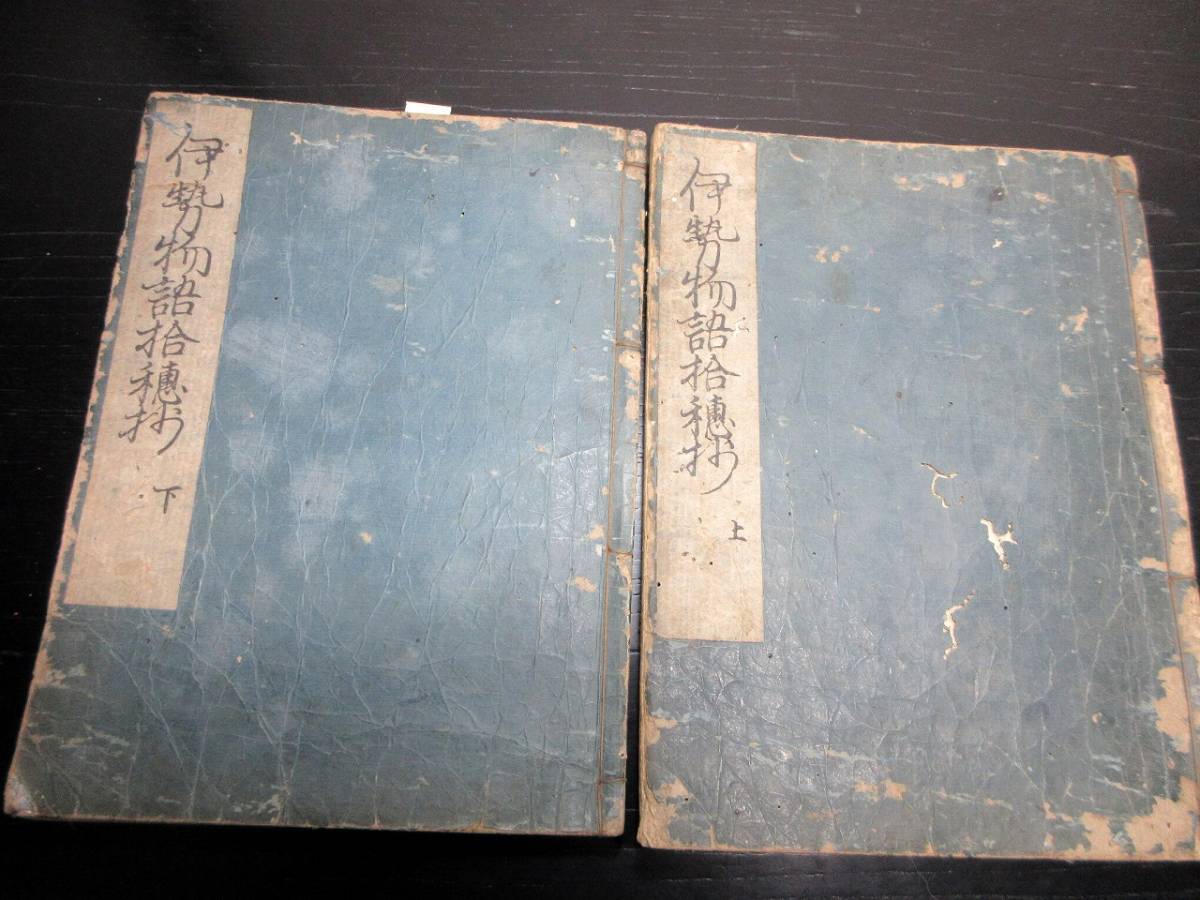 伊勢物語拾穂抄 上
伊勢物語拾穂抄 下